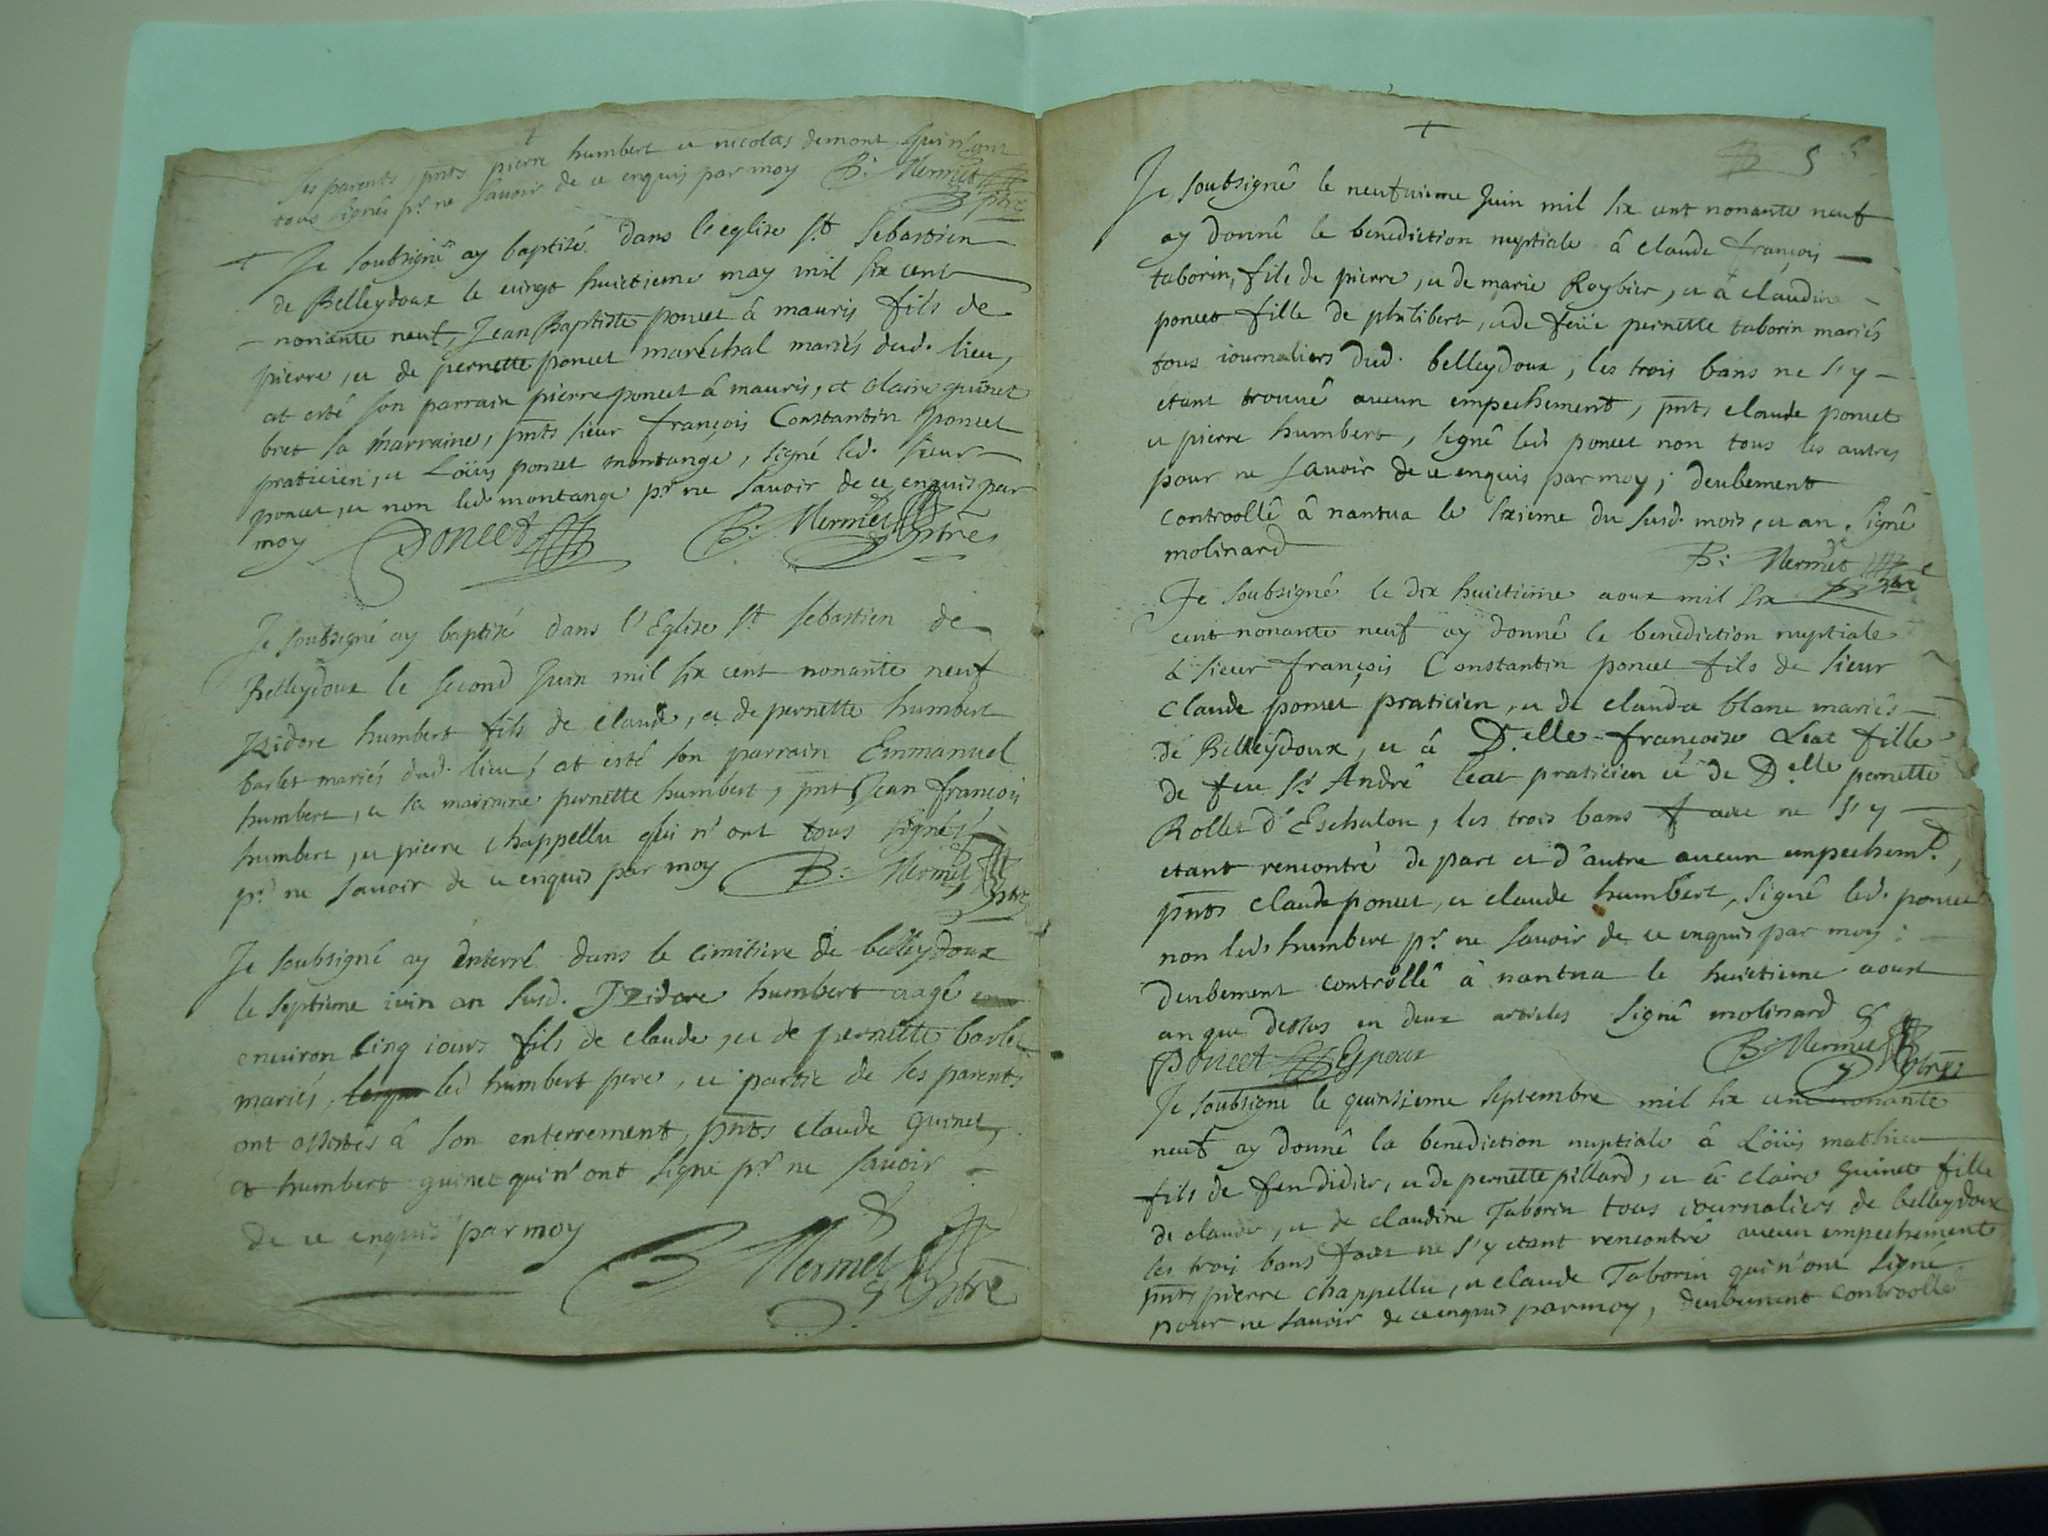 ses parents, pnts pierre humbert et nicolas demont qui n'ont
tous signés pr ne savoir de ce enquis par moy B: Mermet ptre
Je soubsigné ay baptisé dans l'eglise st Sebastien
de Belleydoux le vingt huictieme may mil six cent
nonante neuf, Jean Baptiste poncet â mauris fils de
pierre, et de pernette poncet maréchal mariés dud. lieu,
at esté son parrain pierre poncet â mauris, et Claire guinet
bret sa marraine, pnts sieur françois Constantin poncet
praticien, et Loüis poncet montange, signé led. sieur
poncet, et non led. montange pr ne savoir de ce enquis par
moy Poncet B: Mermet ptre
Je soubsigné ay baptisé dans l'Eglise st sebastien de
Belleydoux le second Juin mil six cent nonante neuf
Izidore humbert fils de claude, et de pernette humbert
barlet mariés dud. lieu, at esté son parrain Emmanuel
humbert, et sa marraine pernette humbert, pnt Jean françois
humbert, et pierre chappellu qui n'ont tous signés
pr ne savoir de ce enquis par moy B: Mermet ptre
Je soubsigné ay enterré dans le cimitiere de belleydoux
le septieme iuin an susd. Izidore humbert aagé
environ cinq iours fils de claude, et de pernette barlet
mariés, led humbert pere, et partie de ses parents
ont assistés â son enterrement, pnts claude guinet,
et humbert guinet qui n'ont signé pr ne savoir
de ce enquis par moy
B Mermet ptre
5
Je soubsigné le neufvieme Juin mil six cent nonante neuf
ay donné le benediction nuptiale â claude françois
taborin, fils de pierre, et de marie Roybier, et â claudine
poncet fille de philibert, et de feüe pernette taborin mariés
tous iournaliers dud. belleydoux, les trois bans ne s'y
étant trouvé aucun empechement, pnts claude poncet
et pierre humbert, signé led poncet non tous les autres
pour ne savoir de ce enquis par moy; deubement
controollé â nantua le sixieme du susd. mois, et an. signé
molinard B: Mermet ptre
Je soubsigné le dix huictieme aoux mil six
cent nonante neuf ay donné la benediction nuptiale
â sieur françois Constantin poncet fils de sieur
claude poncet praticien, et de clauda blanc mariés
de Belleydoux, et â D.elle françoise Leat fille
de feu sr André leat praticien et de D.elle pernette
Rollet d'Eschalon, les trois bans faict ne s'y
etant rencontré de part et d'autre aucun empechemt,
pnts claude poncet, et claude humbert, signé led. poncet
non led. humbert pr ne savoir de ce enquis par moy:
deubement controllé â nantua le huictieme aoux
an que dessus en deux articles signé molinard
Poncet Epoux B: Mermet ptre
Je soubsigné le quinsieme septembre mil six cent nonante
neuf ay donné la benediction nuptiale â Loüis mathieu
fils de feu didier, et de pernette pillard, et â claire guinet fille
de claude, et de claudine Taborin tous iournaliers de belleydoux
les trois bans faict ne s'y etant rencontré aucun empechement
pnts pierre chappellu, et claude Taborin qui n'ont signé
pour ne savoir de ce enquis par moy, deubement controollé